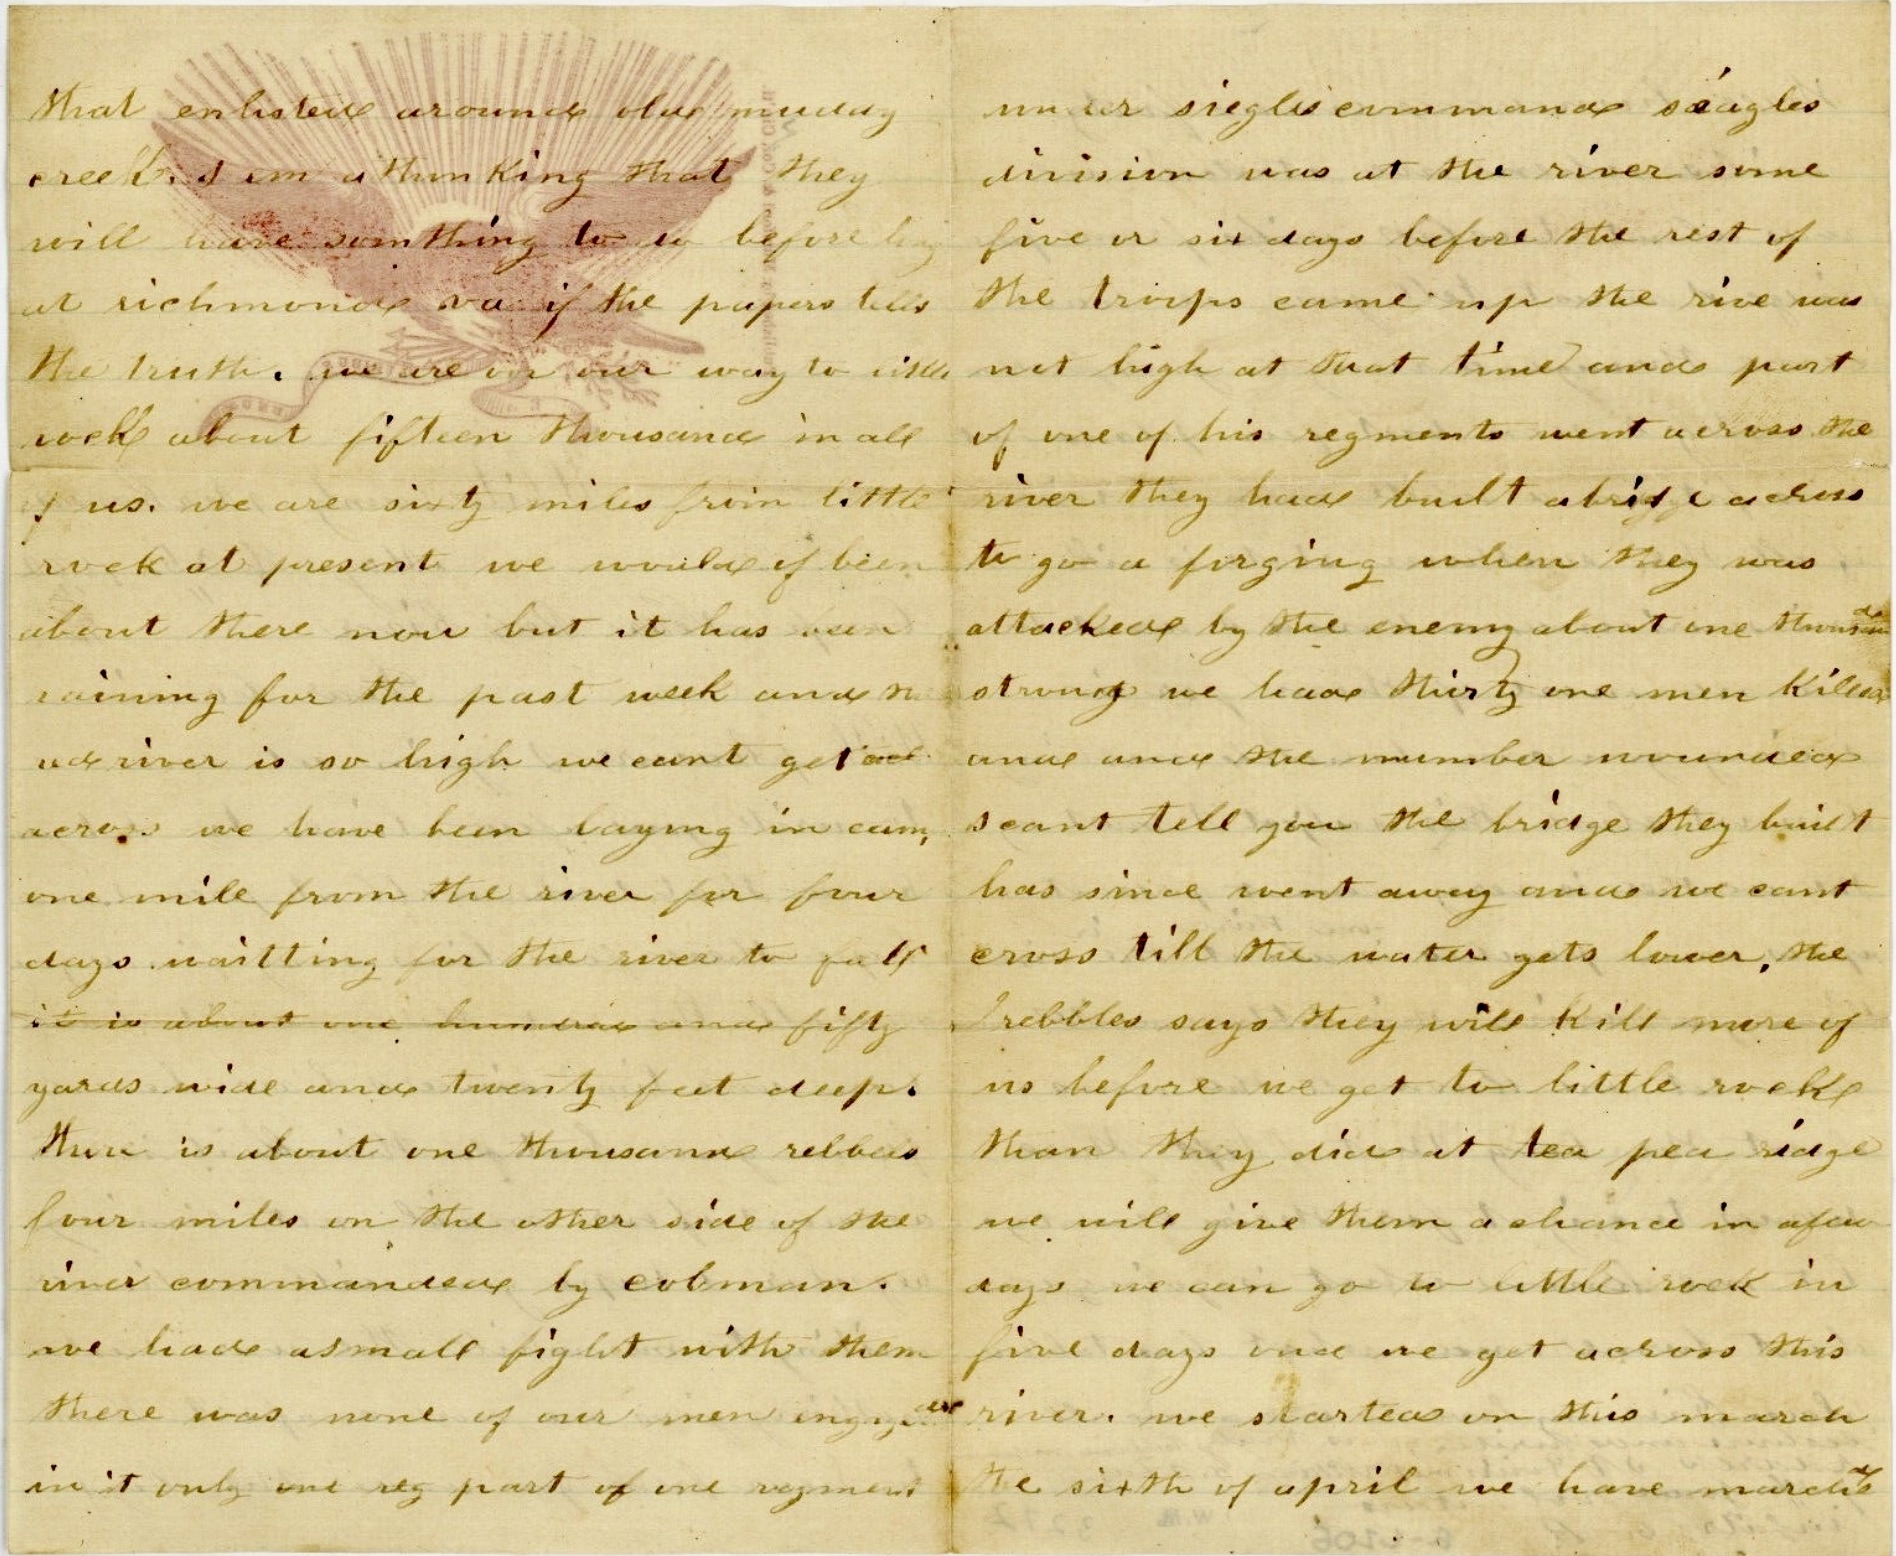 that enlisted around old muddy
creek. I am a thinking that they
will have somthing to do before long
at richmond va if the papers tells
the truth. we are on our way to little
rock about fifteen thousand in all
of us. we are sixty miles from little
rock at present we would of been
about there now but it has been
raining for the past week and
red river is so high we cant get
across we have been laying in camp
one mile from the river for four
days waitting for the river to fall
it is about one hundred and fifty
yards wide and twenty feet deep.
there is about one thousand rebbels
four miles on the other side of the
river commanded by colman.
we had a small fight with them
there was none of our men engaged
in it only one reg part of one regment
under siegles command seagles
division was at the river some
five or six days before the rest of
the troops came up the rive was
not high at that time and part
of one of his regments went across the
river they had built a bridge across
to go a forging when they was
attacked by the enemy about one thousand
strong we had thirty one men killed
and and the number wounded
I cant tell you the bridge they built
has since went away and we cant
cross till the water gets lower. the
rebbles says they will kill more of
us before we get to little rock
than they did at tea pea ridge
we will give them a chance in a few
days we can go to little rock in
five days once we get across this
river. we started on this march
the sixth of april we have marched